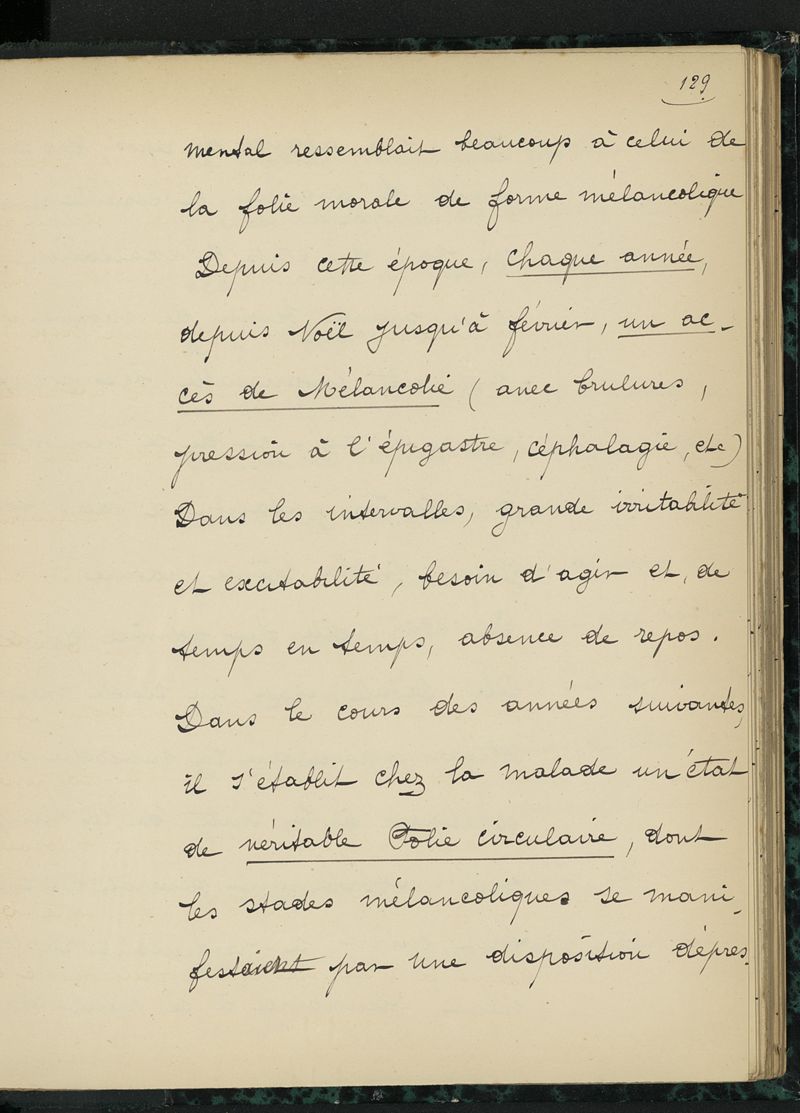 129
mental ressemblait beaucoup à celui de
la folie morale de forme mélancolique
Depuis cette époque, chaque année,
depuis Noël jusqu'à février, un ac-
cès de Mélancolie (avec brulures,
pression à l'épigastre, céphalagie, etc)
Dans les intervalles, grande irritabilité
et excitabilité, besoin d'agir et, de
temps en temps, absence de repos.
Dans le cours des années suivantes,
il s'établit chez la malade un état
de véritable Folie circulaire, dont
les stades mélancoliques se mani-
festaient par une disposition dépres-